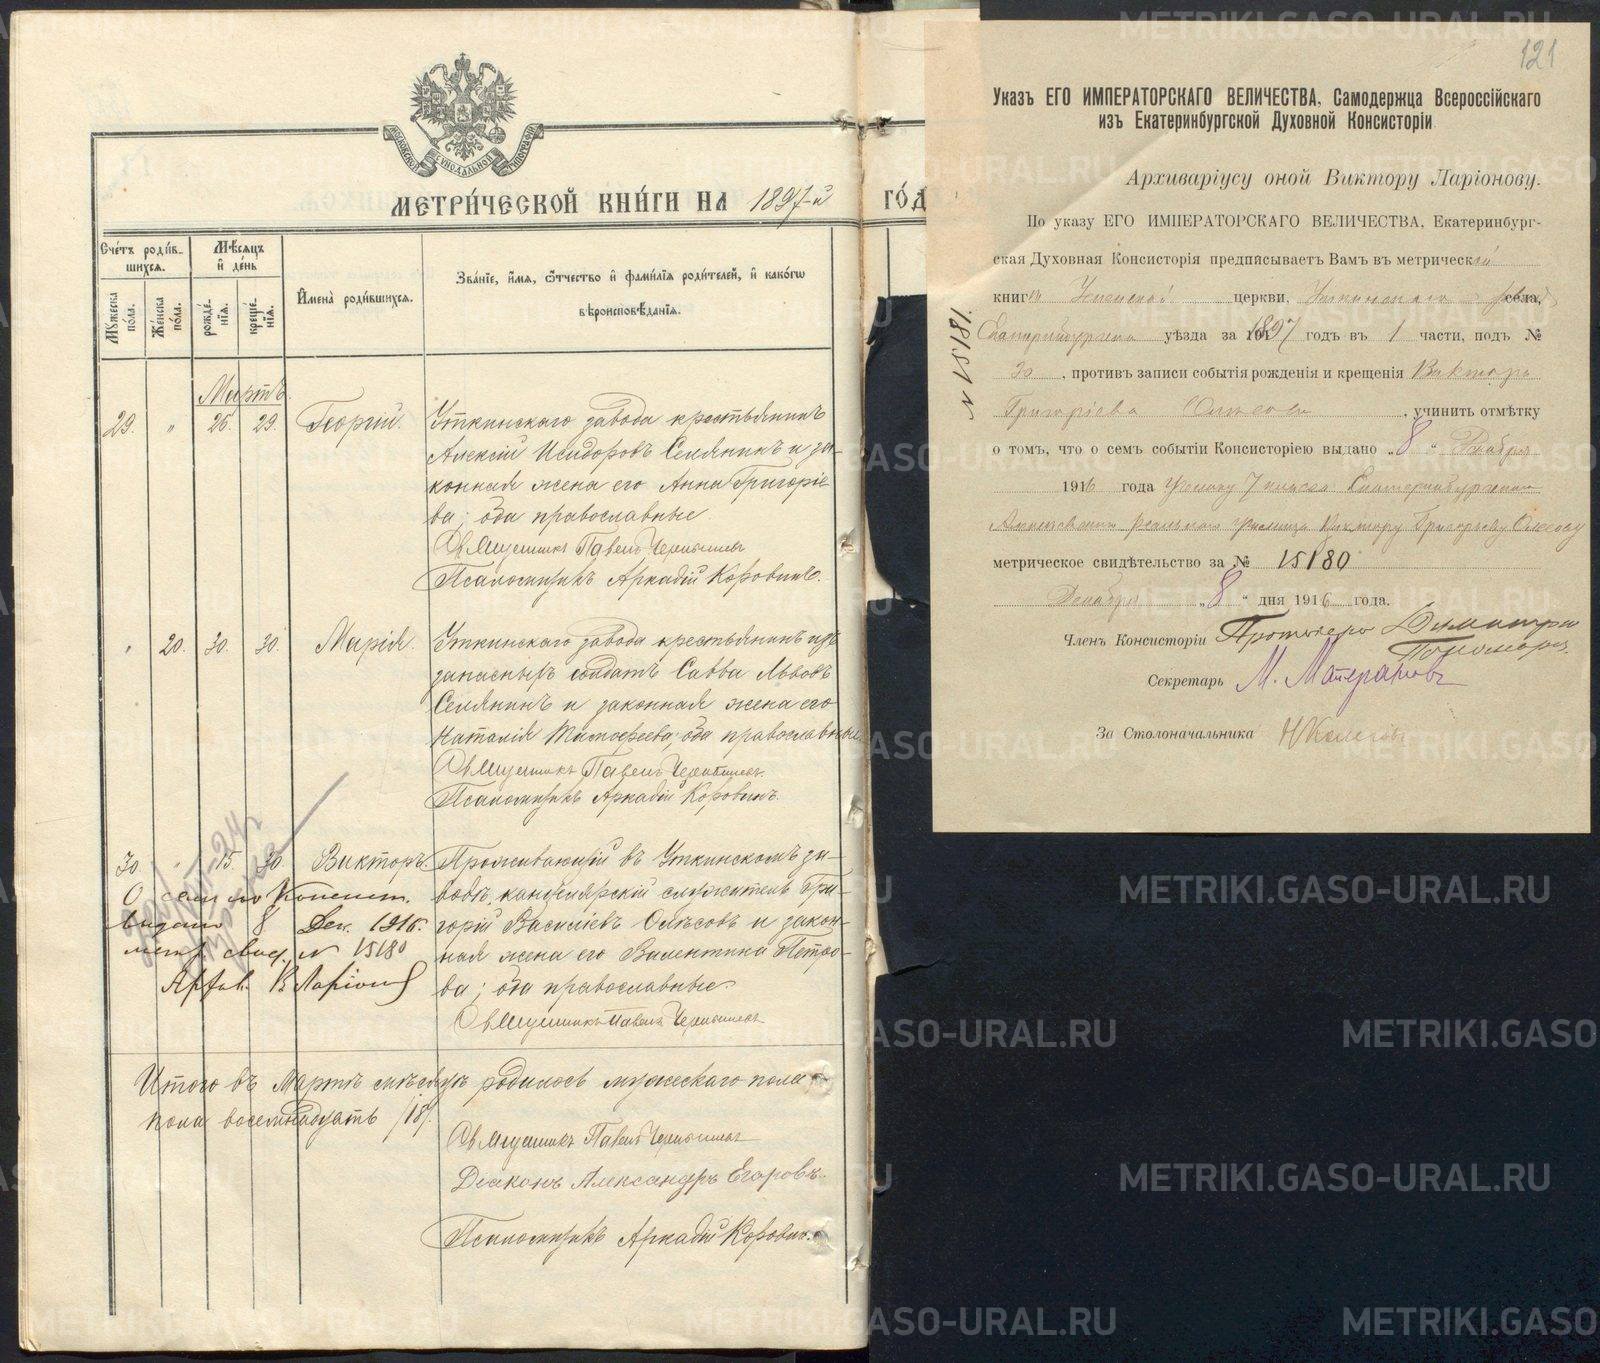 МЕТРИ́ЧЕСКОЙ КНИ́ГИ НА 1897-й ГО́Д
Сче́тъ роди́в-
шихся.
Мꙋ́жеска по́ла.
Же́нска по́ла.
Мѣ́сяцъ и҆ де́нь
рожде́-
нїѧ.
креще́-
нїѧ.
И҆мена̀ роди́вшихся.
Зва́нїе, и҆́мѧ, ѻ҆́тчество и҆ фами́лїѧ роди́телей, и҆ како́гѡ
вѣроисповѣ́данїѧ.
Мартъ
29. " 26. 29. Георгій.
Уткинскаго завода крестьянинъ
Алексій Исидоровъ Селянинъ и за-
конная жена его Анна Григоріе-
ва; оба православные.
Священникъ Павелъ Чернышевъ
Псаломщикъ Аркадій Коровинъ.
" 20. 30. 30. Марія.
Уткинскаго завода крестьянинъ изъ
запасныхъ солдатъ Савва Львовъ
Селянинъ и законная жена его
Наталія Тимофеева; оба православные
Священникъ Павелъ Чернышевъ.
Псаломщикъ Аркадій Коровинъ.
30. " 15 30 Викторъ.
Проживающій въ Уткинскомъ за-
водѣ канцелярскій служитель Гри-
горій Василіевъ Олѣсовъ и закон-
ная жена его Валентина Петро-
ва; оба православные.
Священникъ Павелъ Чернышевъ
О семъ по Консист.
выдано 8 Дек. 1916.
метр. свид. № 15180
Архив. В Ларіоновъ
Итого въ Мартѣ мѣсяцѣ родилось мужескаго пола
пола восемнадцать /18/.
Священникъ Павелъ Чернышевъ
Діаконъ Александръ Егоровъ.
Псаломщикъ Аркадій Коровинъ.
121
Указъ ЕГО ИМПЕРАТОРСКАГО ВЕЛИЧЕСТВА, Самодержца Всероссійскаго
изъ Екатеринбургской Духовной Консисторіи
Архиваріусу оной Виктору Ларіонову.
По указу ЕГО ИМПЕРАТОРСКАГО ВЕЛИЧЕСТВА, Екатеринбург-
ская Духовная Консисторія предписываетъ Вамъ въ метрической
книгѣ Успенской церкви, Уткинскаго завода села,
Екатеринбургскаго уѣзда за 1897 годъ въ 1 части, подъ №
30, противъ записи событія рожденія и крещенія Виктора
Григоріева Олѣсова, учинить отмѣтку
о томъ, что о семъ событіи Консисторіею выдано „8" Декабря
1916 года ученику 7 класса Екатеринбургскаго
Алексѣевскаго реальнаго училища Виктору Григорьеву Олесову
метрическое свидѣтельство за № 15180
Декабря „8" дня 1916 года.
Членъ Консисторіи Протоіерей Димитрій
Пономарев.
Секретарь М.
За Столоначальника
№ 15181.
METRIKI.GASO-URAL.RU